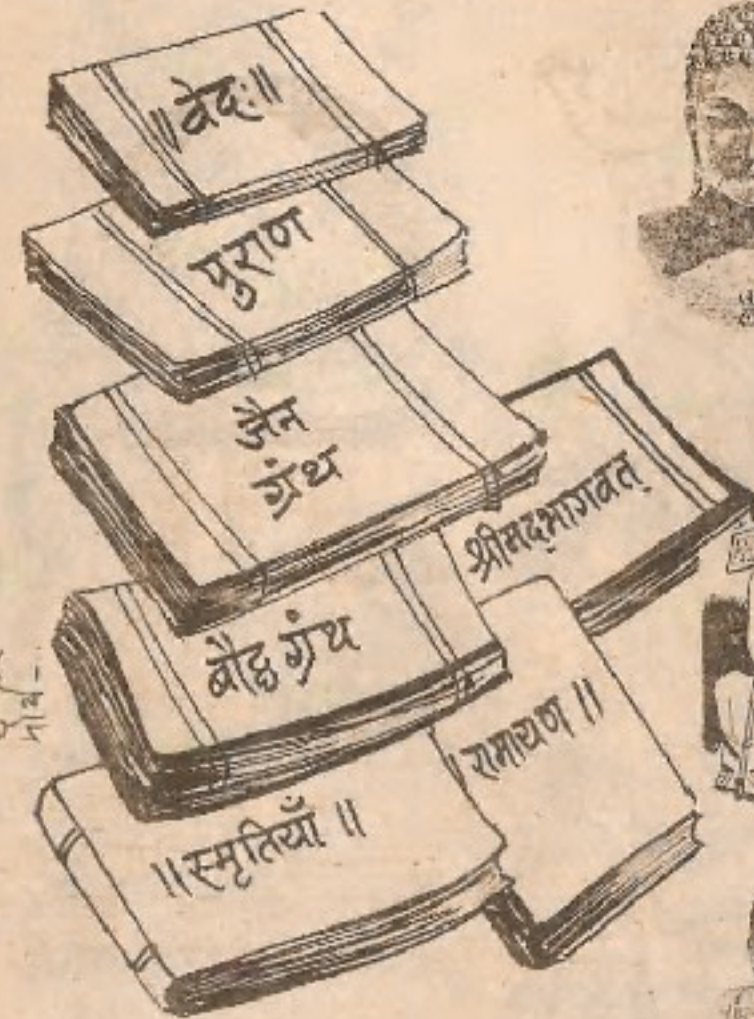 ॥वेदः॥
पुराण
जैन
ग्रंथ
श्रीमद्‌भागवत्
बौद्ध ग्रंथ
।रामायण ॥
॥स्मृतियाँ ॥